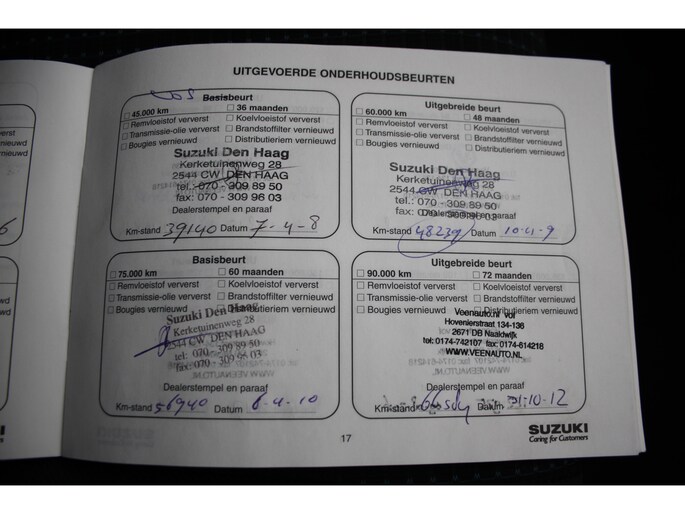 UITGEVOERDE ONDERHOUDSBEURTEN
Basisbeurt
45.000 km 36 maanden
Remvloeistof ververst Koelvloeistof ververst
Transmissie-olie ververst Brandstoffilter vernieuwd
Bougies vernieuwd Distributieriem vernieuwd
Suzuki Den Haag
Kerketuinenweg 28
2544 CW DEN HAAG
tel.: 070 - 309 89 50
fax: 070 - 309 96 03
Dealerstempel en paraaf
Km-stand 39140 Datum 7-4-8
Uitgebreide beurt
60.000 km 48 maanden
Remvloeistof ververst Koelvloeistof ververst
Transmissie-olie ververst Brandstoffilter vernieuwd
Bougies vernieuwd Distributieriem vernieuwd
Suzuki Den Haag
Kerketuinenweg 28
2544 CW DEN HAAG
tel.: 070 - 309 89 50
fax: 070 - 309 96 03
Dealerstempel en paraaf
Km-stand 48239 Datum 10-4-9
Basisbeurt
75.000 km 60 maanden
Remvloeistof ververst Koelvloeistof ververst
Transmissie-olie ververst Brandstoffilter vernieuwd
Bougies vernieuwd Distributieriem vernieuwd
Suzuki Den Haag
Kerketuinenweg 28
2544 CW DEN HAAG
tel.: 070 - 309 89 50
fax: 070 - 309 96 03
Dealerstempel en paraaf
Km-stand 56940 Datum 6-4-10
Uitgebreide beurt
90.000 km 72 maanden
Remvloeistof ververst Koelvloeistof ververst
Transmissie-olie ververst Brandstoffilter vernieuwd
Bougies vernieuwd Distributieriem vernieuwd
Veenauto.nl vof
Hovenierstraat 134-136
2671 DB Naaldwijk
tel: 0174-742107 fax: 0174-614218
WWW.VEENAUTO.NL
Dealerstempel en paraaf
Km-stand Datum 31-10-12
17
SUZUKI
Caring for Customers